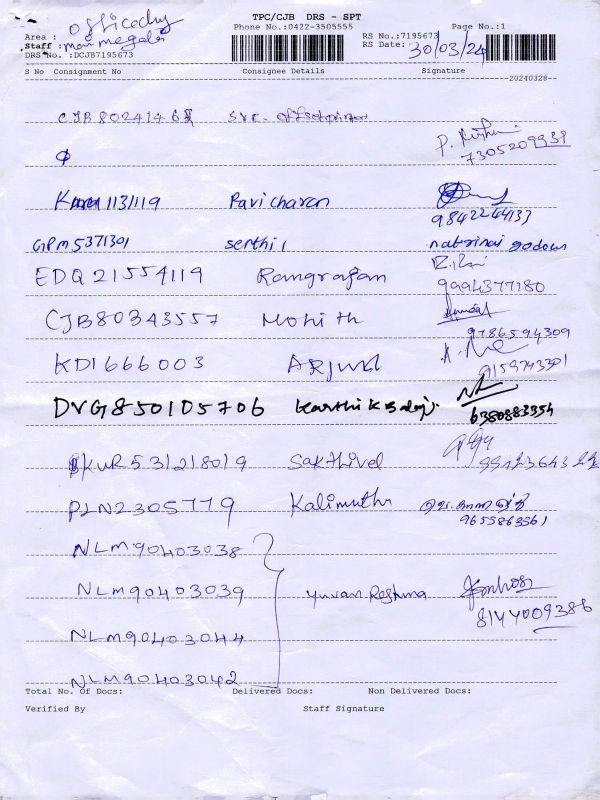 TPC/CJB DRS - SPT
Area : Phone No.:0422-3505555 Page No.:1
Staff : RS No.:7195673
DRS No. :DCJB7195673 RS Date: 30/03/24
S No Consignment No Consignee Details Signature
20240328--
CJB8024146 SVE
P. 7305209939
113/119 Ravi charan
9842244133
GPM5371301 senthil natrinai godown
EDQ21554119 Rangrajan
9994377180
CJB80343557 Mohith
9786594309
KDI666003 ARjun
9159743301
DVG850105706 karthik Balaji
6380883354
KUR531218019 Sakthivel
PLN2305779 Kalimuthu
9655863561
NLM90403038
NLM90403039 yuvan Reshma
8144009386
NLM90403044
NLM90403042
Total No. Of Docs: Delivered Docs: Non Delivered Docs:
Verified By Staff Signature